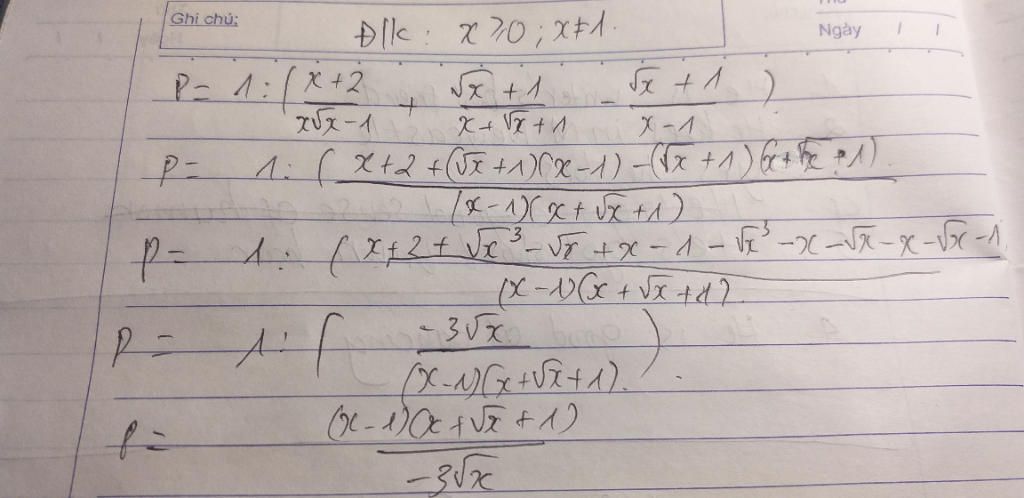 Thứ
Ghi chú:
Ngày / /
Đ/k: x ≥ 0 ; x ≠ 1.
P = 1 : ( (x+2)/(x√x-1) + (√x+1)/(x+√x+1) - (√x+1)/(x-1) )
P = 1 : ( (x+2+(√x+1)(x-1)-(√x+1)(x+√x+1))/((x-1)(x+√x+1))
P = 1 : ( (x+2+√x³-√x+x-1-√x³-x-√x-x-√x-1)/((x-1)(x+√x+1)).
P = 1 : ( (-3√x)/((x-1)(x+√x+1)) ).
P = ((x-1)(x+√x+1))/(-3√x)